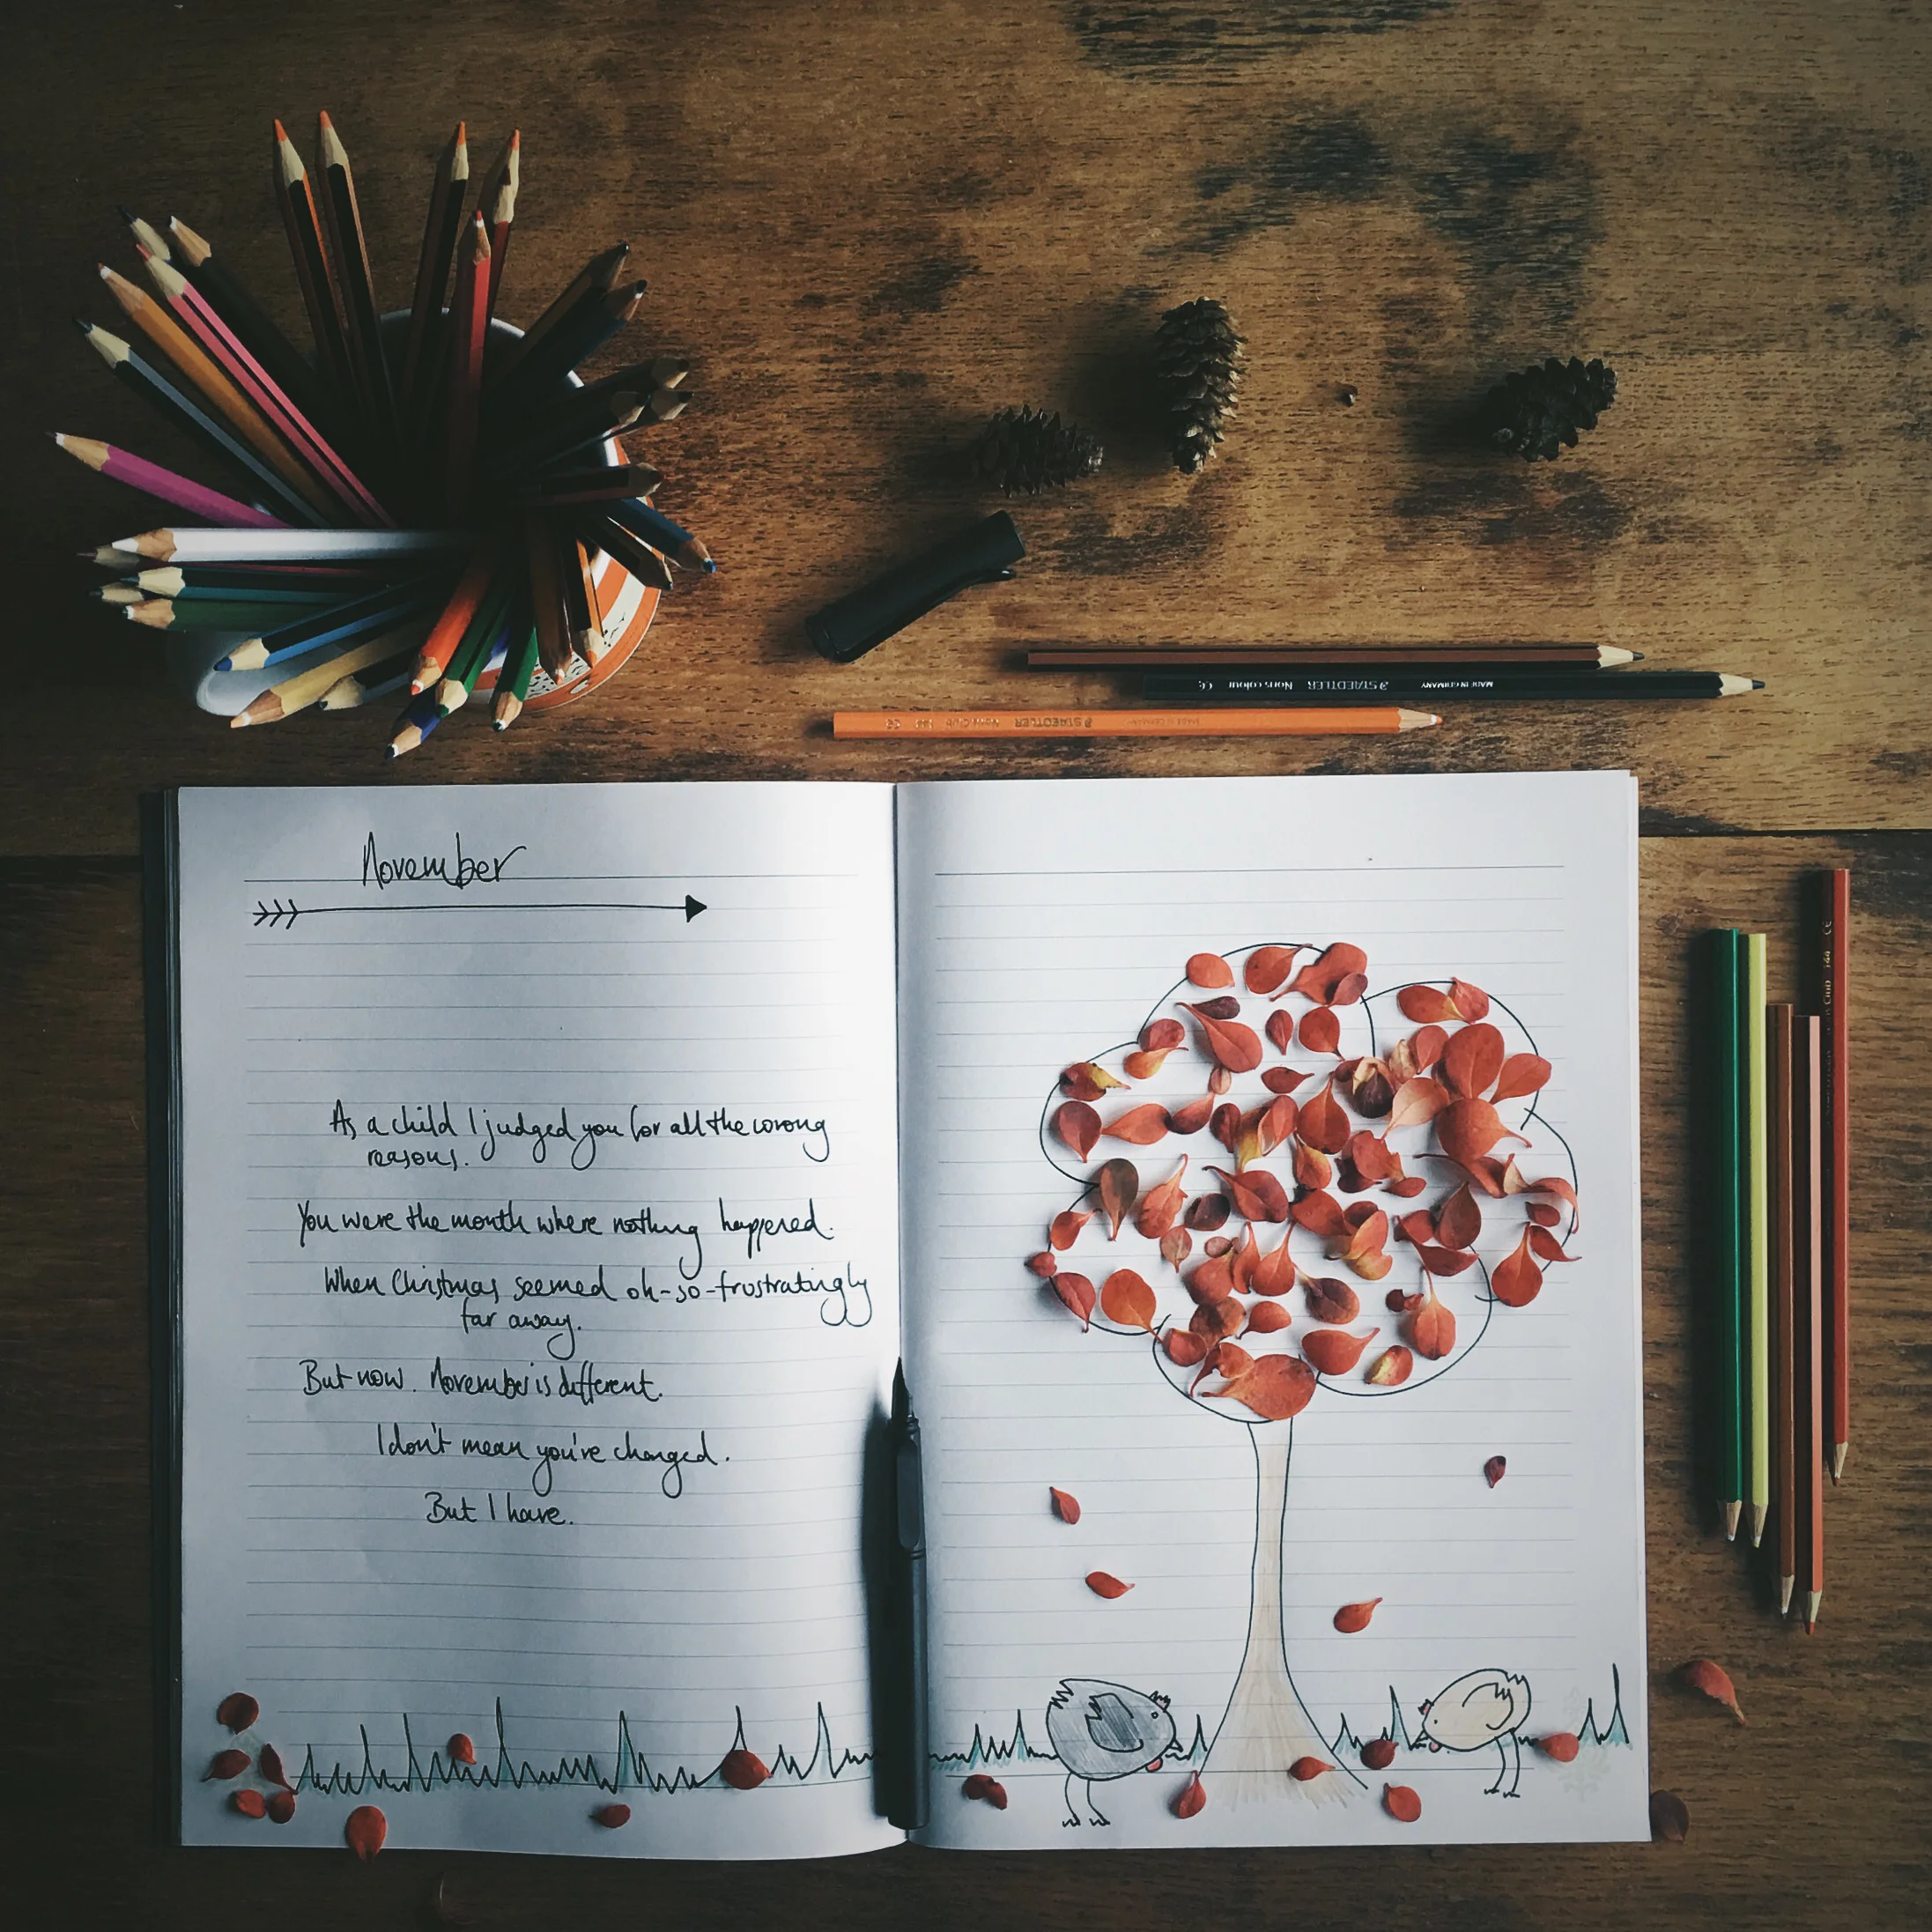 STAEDTLER Noris colour MADE IN GERMANY
STAEDTLER Noris Club MADE IN GERMANY
November
As a child I judged you for all the wrong
reasons.
You were the month where nothing happened.
When Christmas seemed oh-so-frustratingly
far away.
But now. November is different.
I don't mean you've changed.
But I have.
Club 144